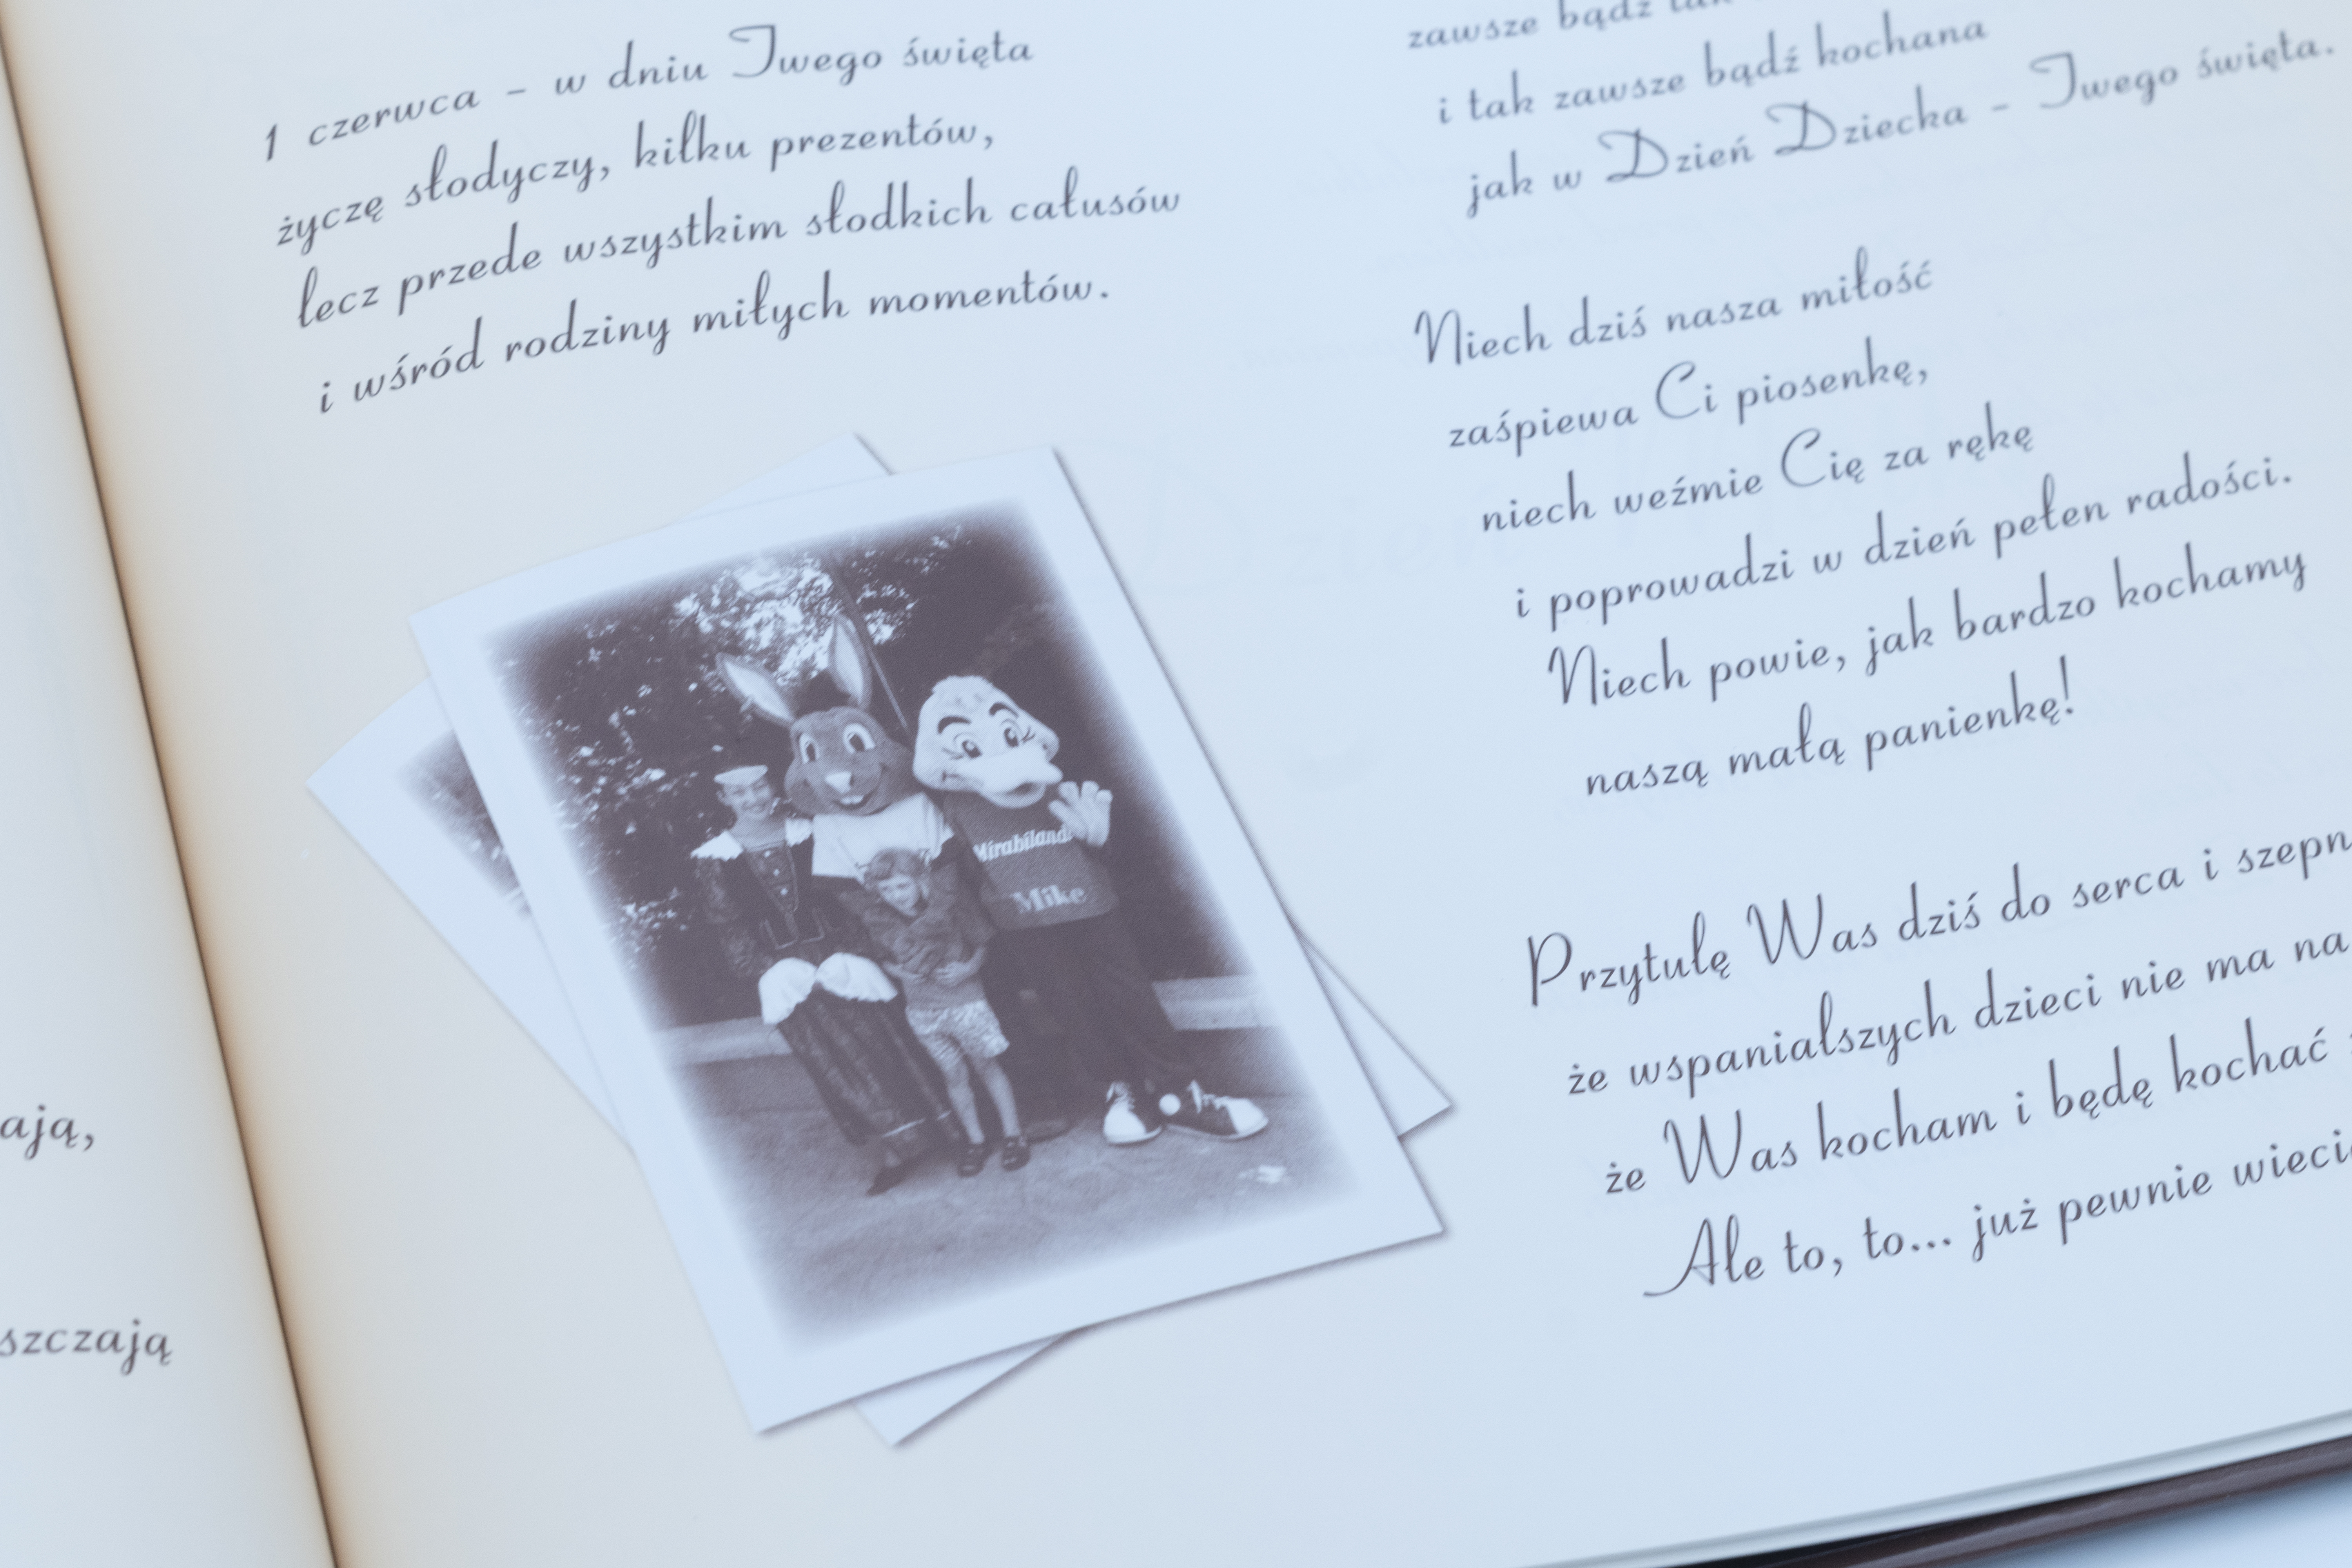 ają,
szczają
1 czerwca - w dniu Twego święta
życzę słodyczy, kilku prezentów,
lecz przede wszystkim słodkich całusów
i wśród rodziny miłych momentów.
Mirabiland
Mike
zawsze bądź tak
i tak zawsze bądź kochana
jak w Dzień Dziecka - Twego święta.
Niech dziś nasza miłość
zaśpiewa Ci piosenkę,
niech weźmie Cię za rękę
i poprowadzi w dzień pełen radości.
Niech powie, jak bardzo kochamy
naszą małą panienkę!
Przytulę Was dziś do serca i szepn
że wspanialszych dzieci nie ma na
że Was kocham i będę kochać
Ale to, to... już pewnie wieci